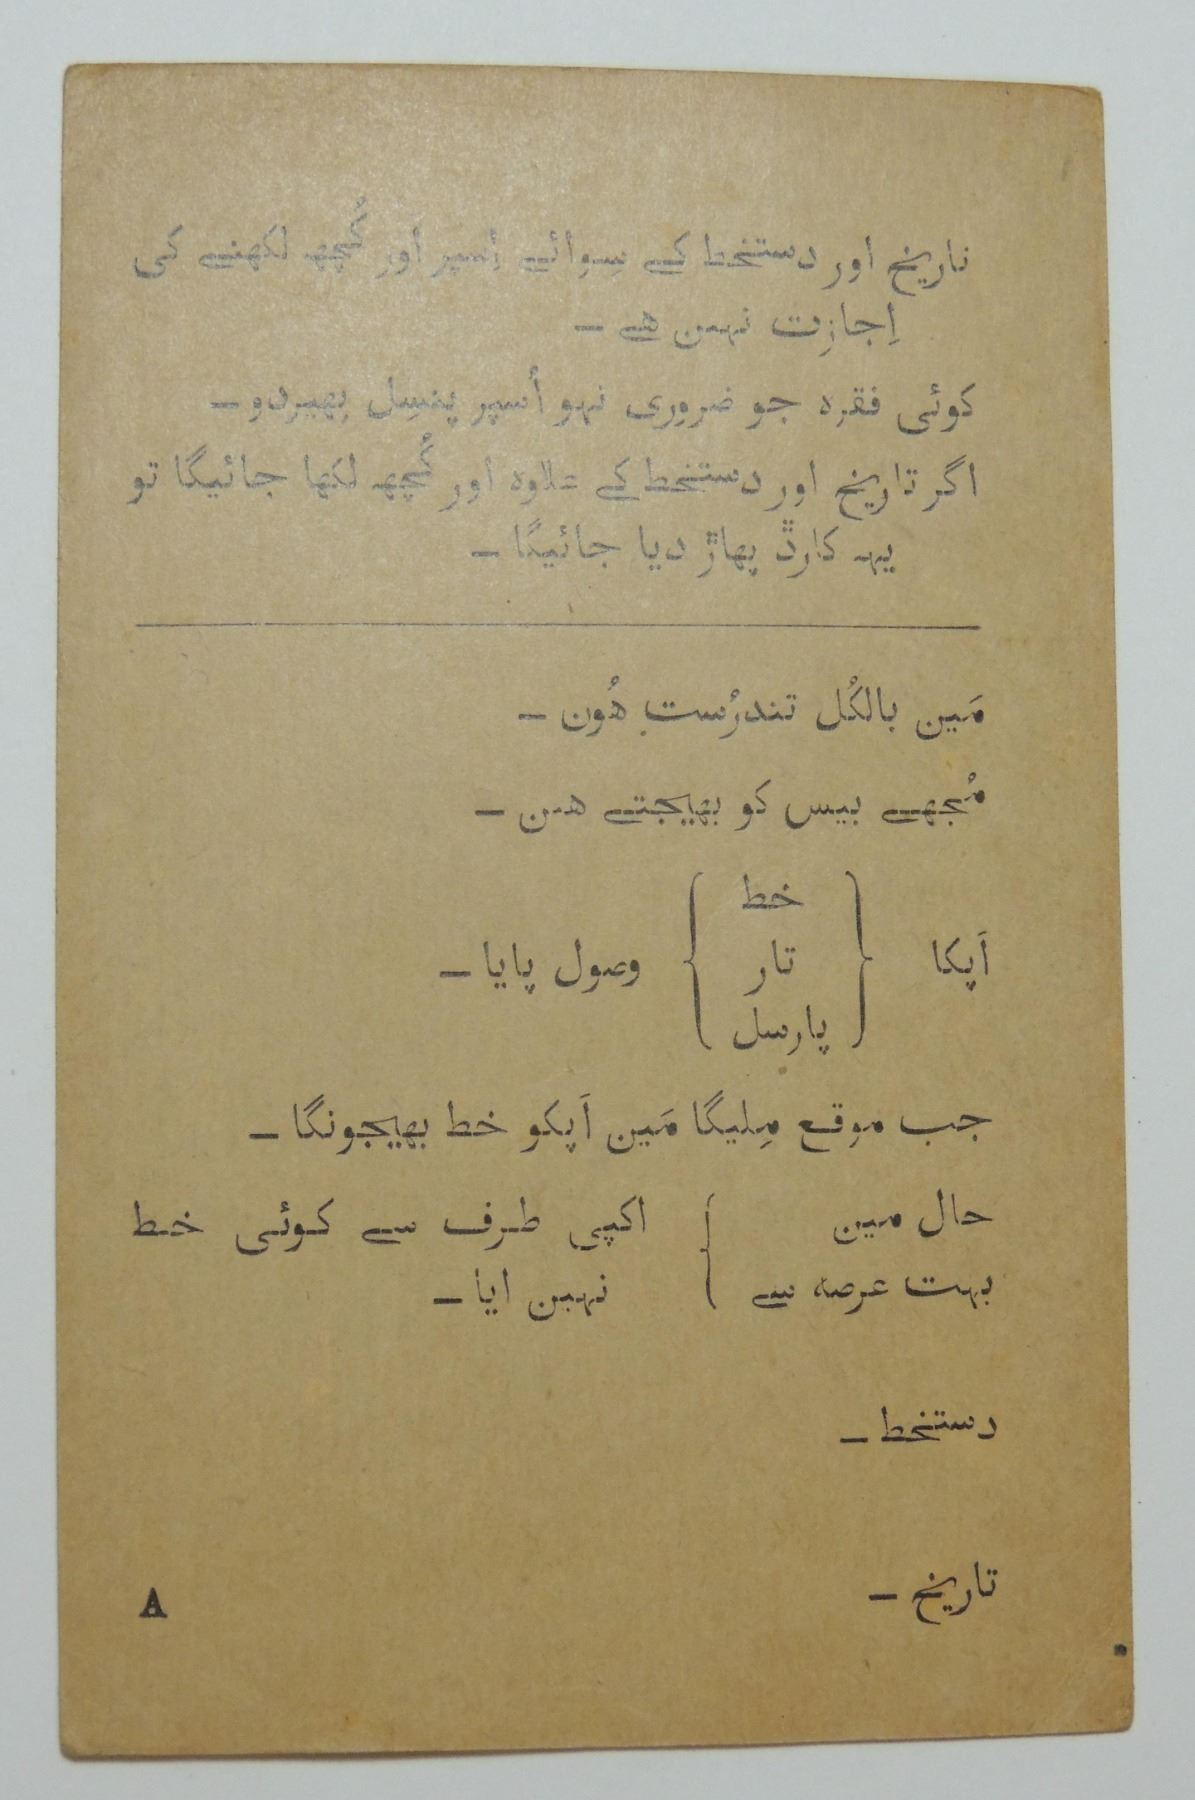 تاریخ اور دستخط کے سِوائے اِسپر اور کُچھہ لکھنے کی
اِجازِت نہین ھے ـ
کوئی فقرہ جو ضروری نہو اُسپر پنسِل پھیردو ـ
اگر تاریخ اور دستخط کے علاوہ اور کُچھہ لکھا جائیگا تو
یہہ کارڈ پھاڑ دیا جائیگا ـ
مَین بالکُل تندرُست ھُون ـ
مُجھے بیس کو بھیجتے ھین ـ
اَپکا { خط
تار
پارسل } وصول پایا ـ
جب موقع مِلیگا مَین اَپکو خط بھیجونگا ـ
حال مین
بہت عرصہ سے } اکپی طرف سے کوئی خط
نہین ایا ـ
دستخط ـ
تاریخ ـ
A